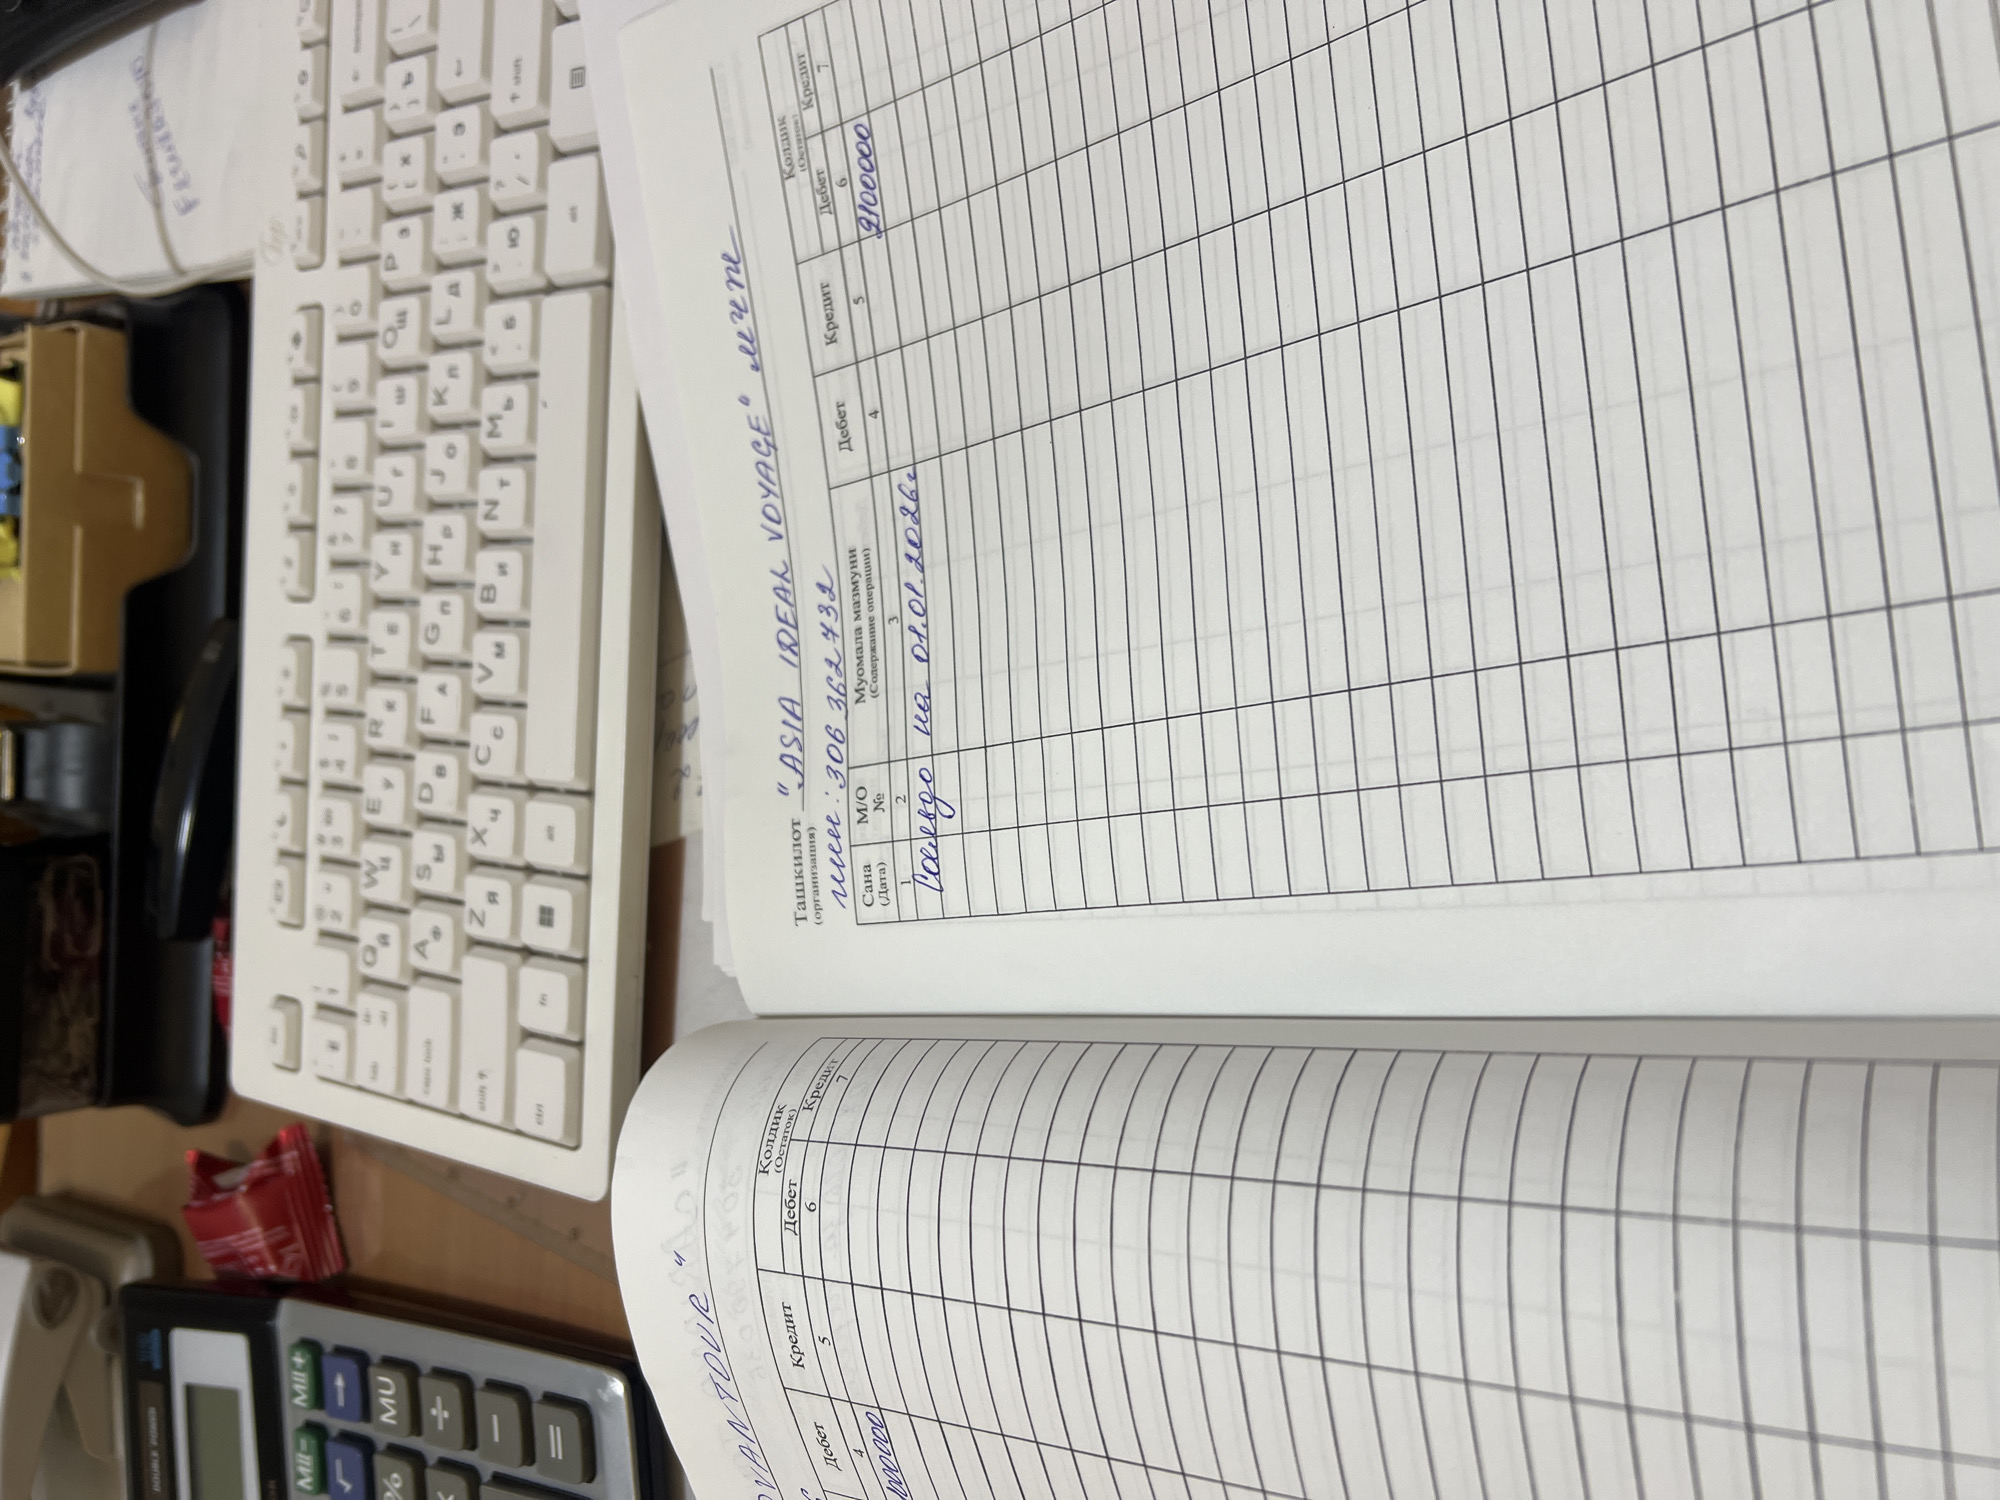 Ташкилот "ASIA IDEAL VOYAGE" мчж
(организация)
инн: 306 362 732
Сана
(Дата)
М/О
№
Муомала мазмуни
(Содержание операции)
Дебет
Кредит
Колдик
(Остаток)
Дебет
Кредит
1 2 3 4 5 6 7
Сальдо на 01.01.2026г
2100000
TOUR"
Дебет
Кредит
Колдик
(Остаток)
Дебет
Кредит
4 5 6 7
caps lock
shift
ctrl
fn
alt
Q Й
W Ц
E У
R К
T Е
Y Н
U Г
I Ш
O Щ
P З
{ [ Х
} ] Ъ
A Ф
S Ы
D В
F А
G П
H Р
J О
K Л
L Д
: ; Ж
Э
shift
Z Я
X Ч
C С
V М
B И
N Т
M Ь
Б
Ю
? /
alt
DOUBLE POWER
MII= MII+
√ →
% MU
÷
−
=